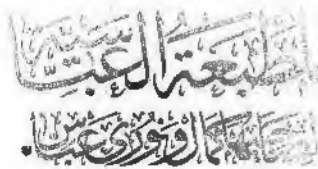 المطبعة العباسية
لصاحبها كمال ونوري عباس.